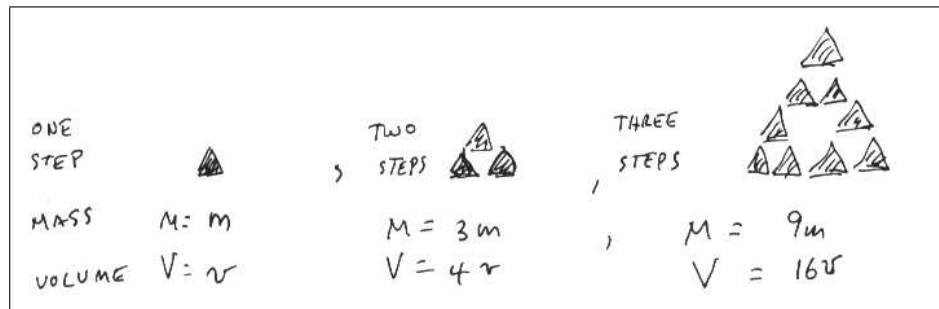 ONE STEP , TWO STEPS , THREE STEPS
MASS M = m M = 3m , M = 9m
VOLUME V = v V = 4v V = 16v